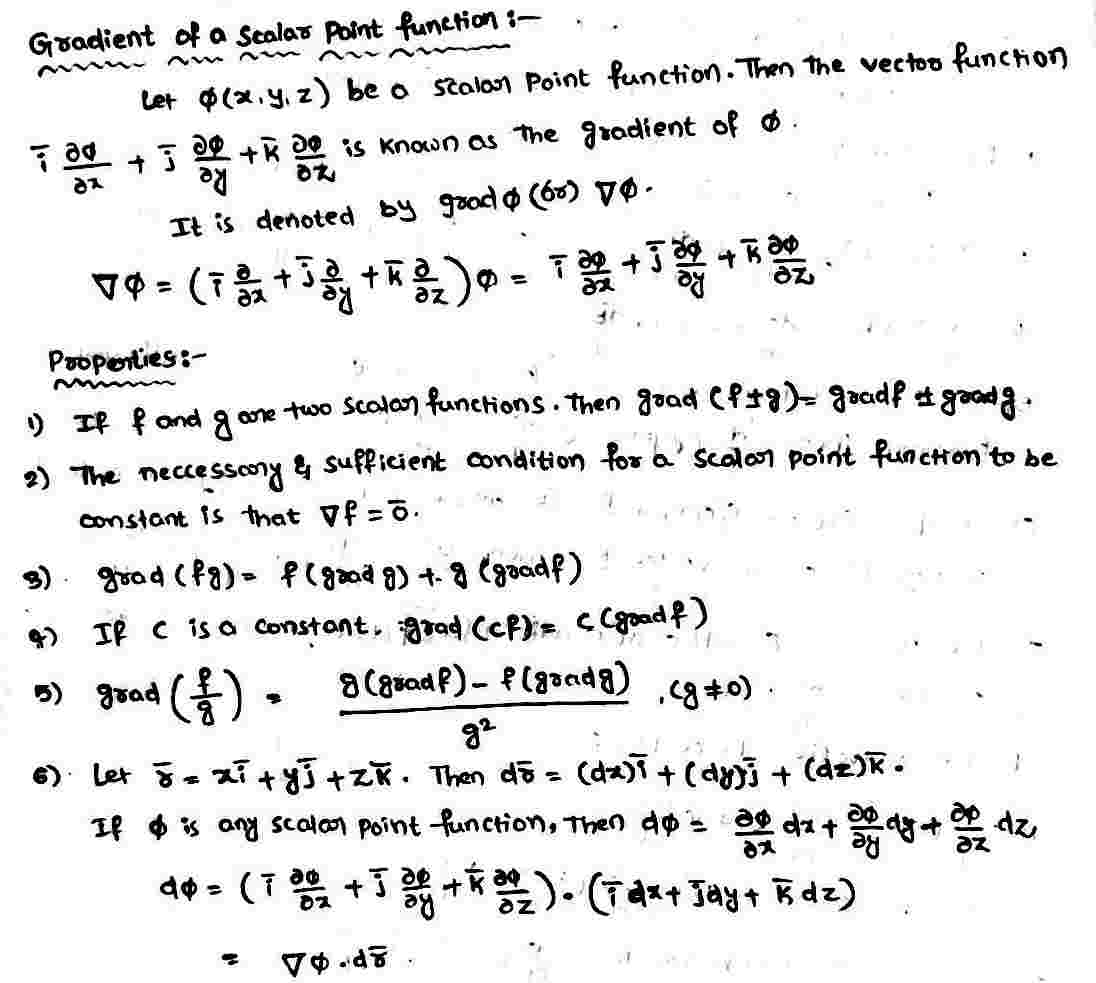 Gradient of a Scalar Point function :-
Let ϕ(x, y, z) be a scalar point function. Then the vector function
i̅ ∂ϕ/∂x + j̅ ∂ϕ/∂y + k̅ ∂ϕ/∂z is known as the gradient of ϕ.
It is denoted by grad ϕ (or) ∇ϕ.
∇ϕ = (i̅ ∂/∂x + j̅ ∂/∂y + k̅ ∂/∂z) ϕ = i̅ ∂ϕ/∂x + j̅ ∂ϕ/∂y + k̅ ∂ϕ/∂z.
Properties :-
1) If f and g are two scalar functions. Then grad (f±g) = grad f ± grad g.
2) The neccessary & sufficient condition for a scalar point function to be
constant is that ∇f = 0̅.
3) grad (fg) = f (grad g) + g (grad f)
4) If C is a constant, grad (cf) = c (grad f)
5) grad (f/g) = g(grad f) - f(grad g) / g², (g ≠ 0).
6) Let r̅ = xi̅ + yj̅ + zk̅. Then dr̅ = (dx)i̅ + (dy)j̅ + (dz)k̅.
If ϕ is any scalar point function, Then dϕ = ∂ϕ/∂x dx + ∂ϕ/∂y dy + ∂ϕ/∂z dz
dϕ = (i̅ ∂ϕ/∂x + j̅ ∂ϕ/∂y + k̅ ∂ϕ/∂z) . (i̅ dx + j̅ dy + k̅ dz)
= ∇ϕ . dr̅